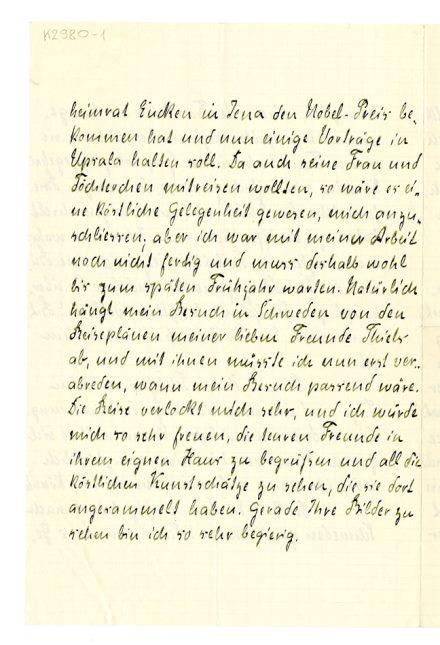 K2980-1
heimrat Eucken in Jena den Nobel-Preis be-
kommen hat und nun einige Vorträge in
Upsala halten soll. Da auch seine Frau und
Töchterchen mitreisen wollten, so wäre es ei-
ne köstliche Gelegenheit gewesen, mich anzu-
schliessen; aber ich war mit meiner Arbeit
noch nicht fertig und muss deshalb wohl
bis zum späten Frühjahr warten. Natürlich
hängt mein Besuch in Schweden von den
Reiseplänen meiner lieben Freunde Thiels
ab, und mit ihnen müsste ich nun erst ver-
abreden, wann mein Besuch passend wäre.
Die Reise verlockt mich sehr, und ich würde
mich so sehr freuen, die teuren Freunde in
ihrem eignen Haus zu begrüßen und all die
köstlichen Kunstschätze zu sehen, die sie dort
angesammelt haben. Gerade Ihre Bilder zu
sehen bin ich so sehr begierig.